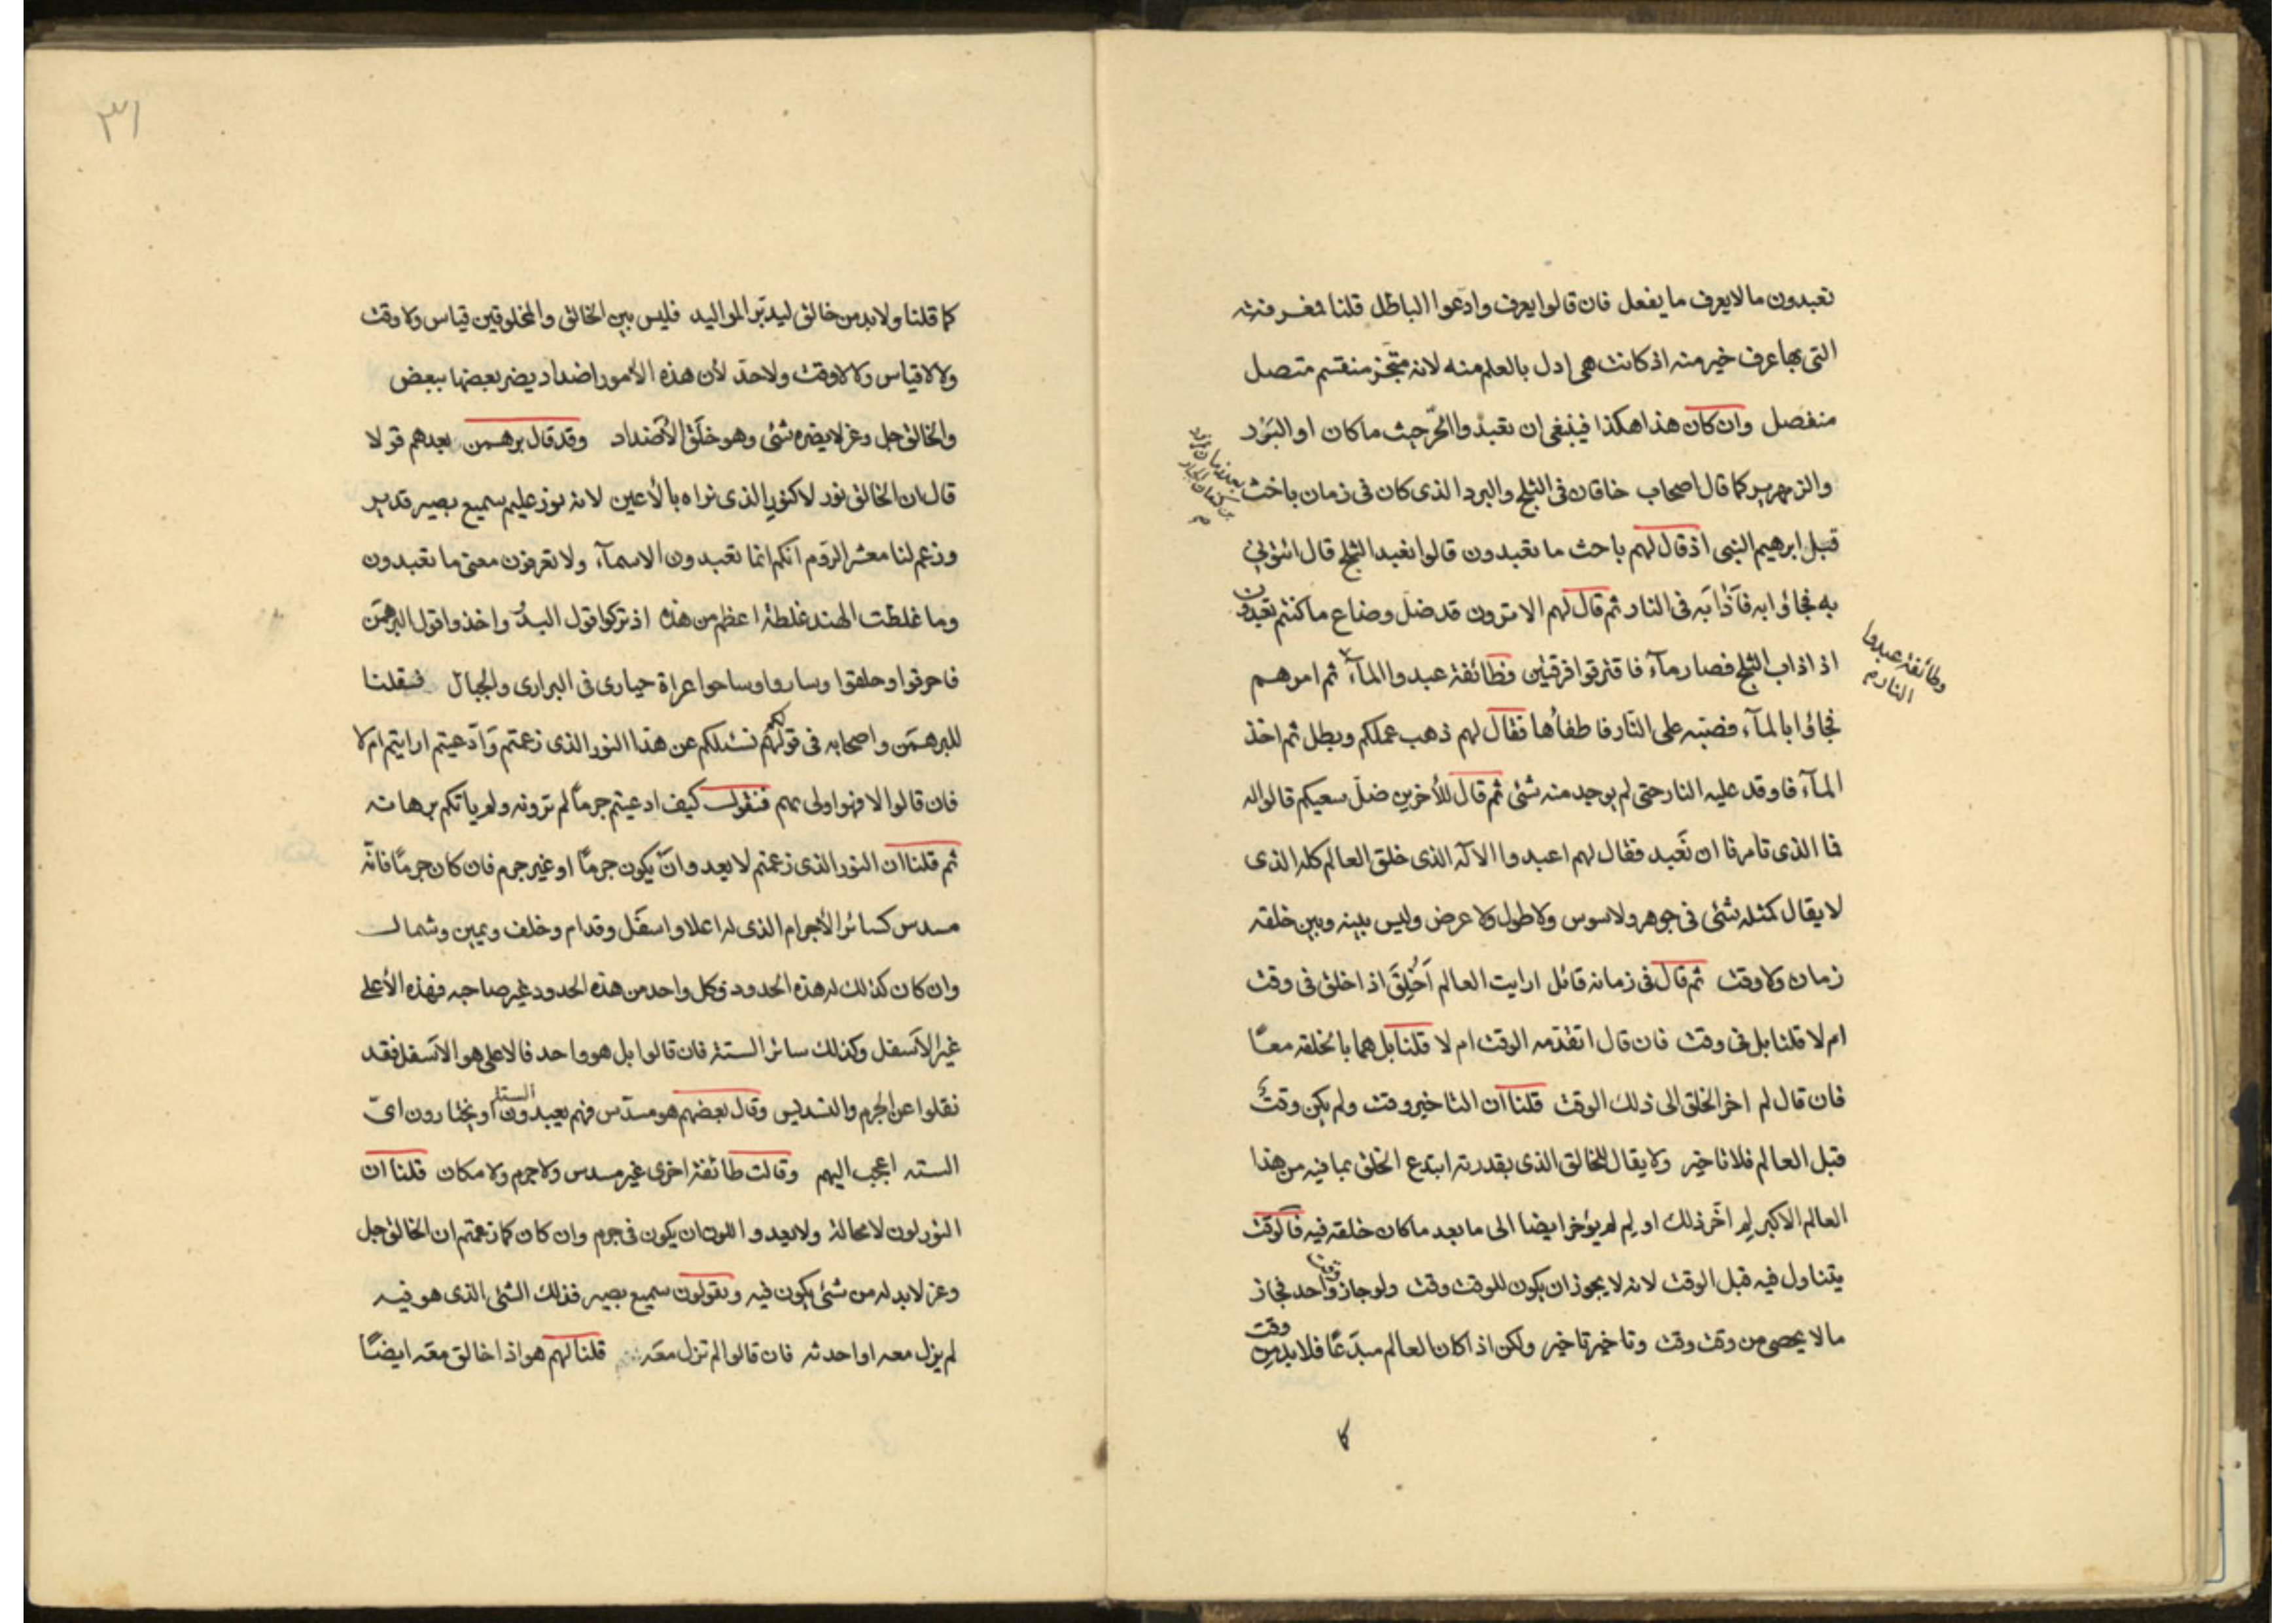 تعبدون ما لا يعرف ما يفعل فان قالوا يعرف وادعوا الباطل قلنا فمعرفته
التي بها عرف خير منه اذ كانت هي ادل بالعلم منه لانه متجز منقسم متصل
منفصل وان كان هذا هكذا فينبغي ان تعبدوا الحرّ حيث ما كان او البَرْد
والزمهرير كما قال اصحاب خاقان في الثلج والبرد الذي كان في زمان باخث
قبل ابرهيم النبي اذ قال لهم باحث ما تعبدون قالوا نعبد الثلج قال ائتوني
به فجاؤا به فآذابَه في النار ثم قال لهم الا ترون قد ضلّ وضاع ما كنتم تعبدون
اذ اذاب الثلج فصار مآء فاقترقوا فرقتين فطائفة عبدوا المآء ثم امرهم
وطائفة عبدوا
النار م
فجاؤا بالمآء فصبّه على النّار فاطفأها فقال لهم ذهب عملكم وبطل ثم اخذ
المآء فاوقد عليه النار حتى لم يوجد منه شئ ثم قال للأخرين ضلّ سعيكم قالوا له
فما الذي تأمرنا ان نَعبد فقال لهم اعبدوا الالٓه الذي خلق العالم كله الذي
لا يقال كمثله شئ في جوهر ولا سوس ولا طول ولا عرض وليس بينه وبين خلقه
زمان ولا وقت ثم قال في زمانه قائل ارايت العالم اَخُلِقَ اذ اخلق في وقت
ام لا قلنا بل في وقت فان قال اتقدّمه الوقت ام لا قلنا بل هما بالخلقة معًا
فان قال لم اخر الخلق الى ذلك الوقت قلنا ان التاخير وقت ولم يكن وقت
قبل العالم فلا تاخير ولا يقال للخالق الذي بقدرته ابتدع الخلق بما فيه من هذا
العالم الاكبر لِم اخّر ذلك او لِم لم يؤخر ايضا الى ما بعد ما كان خلقه فيه فالوقت
يتناول فيه قبل الوقت لانه لا يجوز ان يكون للوقت وقت ولو جاز واحد فجاز
ما لا يحصى من وقت وقت وتاخير تاخير ولكن اذ اكان العالم مبدَعًا فلا بد من وقت
كا
٣١
كما قلنا ولا بد من خالق ليدبّر المواليد فليس بين الخالق والمخلوقين قياس ولا وقت
ولا لاقياس ولا لاوقت ولا حدّ لأن هذه الأمور اضداد يضر بعضها ببعض
والخالق جل وعز لا يضره شئ وهو خلَق الأضداد وقد قال برهمن بعدهم قولا
قال ان الخالق نور لا كنور الذي نراه بالأعين لانه نور عليم سميع بصير قدير
وزعم لنا معشر الروم انكم انما تعبدون الاسمآء ولا تعرفون معنى ما تعبدون
وما غلطت الهند غلطة اعظم من هذه اذ تركوا قول البدُّ واخذوا قول البرهمَن
فاحرقوا وحلقوا وساروا وساحوا عراة حيارى في البراري والجبال فقلنا
للبرهمَن واصحابه في قولهم نسئلكم عن هذا النور الذي زعمتم وَادّعيتم ارايتم ام لا
فان قالوا لا فهو اولى بهم فنقول كيف ادعيتم جرمًا لم ترونه ولم ياتكم برهانه
ثم قلنا ان النور الذي زعمتم لا يعدو انْ يكون جرمًا او غير جرم فان كان جرمًا فانّه
مسدس كسائر الأجرام الذي له اعلا واسفَل وقدام وخلف ويمين وشمال
وان كان كذلك له هذه الحدود وكل واحد من هذه الحدود غير صاحبه فهذه الأعلى
غير الأسفل وكذلك سائر الستة فان قالوا بل هو واحد فالاعلى هو الأسفل فقد
نقلوا عن الجرم والتسديس وقال بعضهم هو مسدّس فهم يعبدون الستة او يختارون ايّ
الستة اعجب اليهم وقالت طائفة اخرى غير مسدس ولا جرم ولا مكان قلنا ان
النور لون لا محالة ولا يعدو اللون ان يكون في جرم وان كان كما زعمتم ان الخالق جل
وعز لا بد له من شئ يكون فيه وتقولون سميع بصير فذلك الشئ الذي هو فيه
لم يزل معه او احدثه فان قالوا لم تزل معَه قلنا لهم هو اذا خالق معَه ايضًا